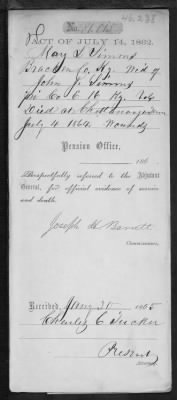 46,238
No.
ACT OF JULY 14, 1862.
Mary D Simons
Bracken Co. Ky. Wid of
John J. Simons
Pri Co. C 16 Ky. Vols
Died at Chattanooga Tenn
July 4 1864. Wounds
Pension Office,
186
Respectfully referred to the Adjutant
General, for official evidence of service
and death.
Joseph H Barrett
Commissioner.
Received, Jany 30 1865
Charles C Tucker
Present